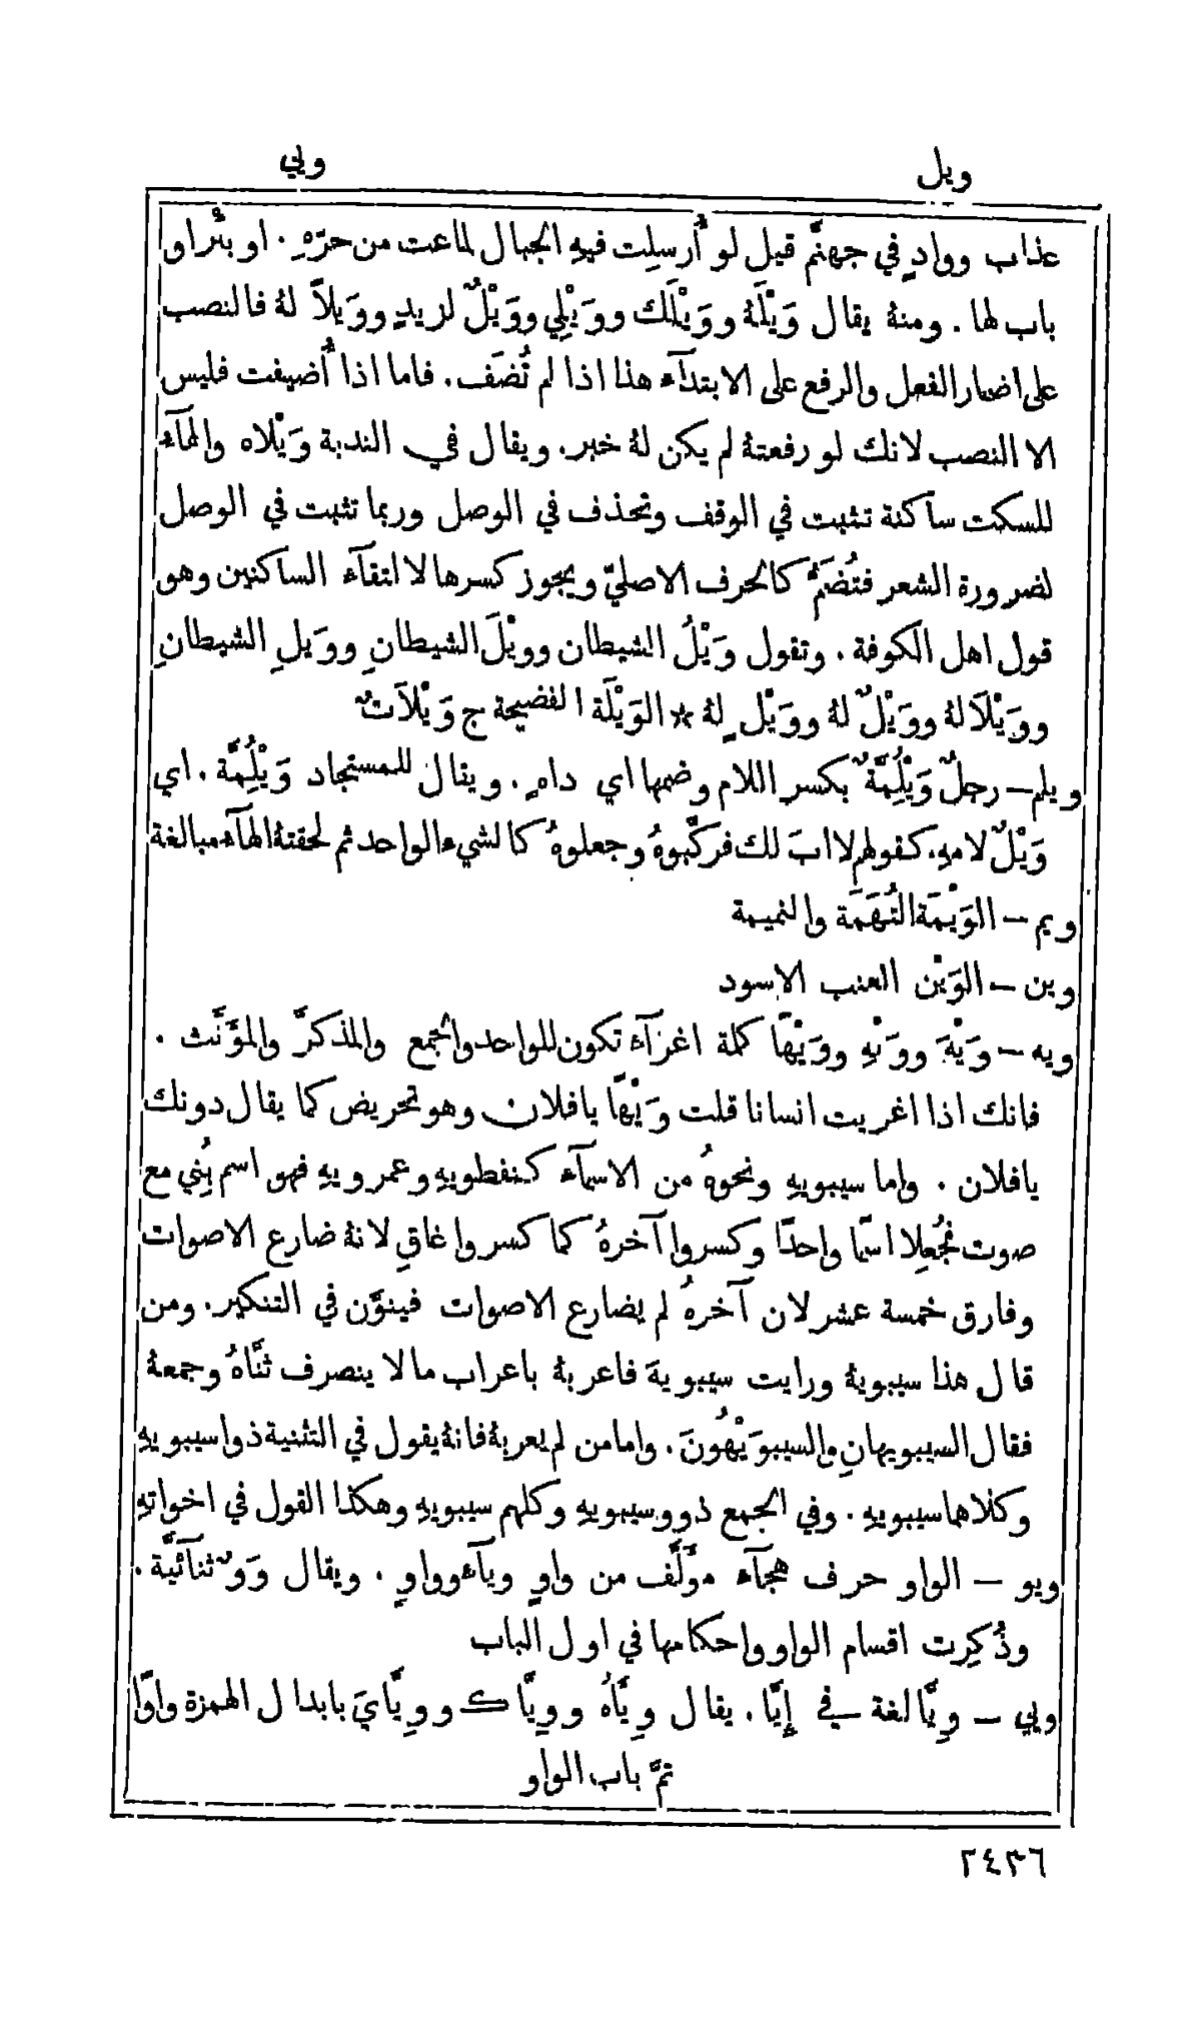 ويل
ويي
عذاب ووادٍ في جهنَّم قيل لو أُرسِلت فيهِ الجبال لماعت من حرّهِ. او بئر او
باب لها. ومنهُ يقال وَيْلَهُ ووَيْلَك ووَيْلِي ووَيْلٌ لزيدٍ ووَيلاً لهُ فالنصب
على اضمار الفعل والرفع على الابتدآء هذا اذا لم تُضَف. فاما اذا أُضيفت فليس
الا النصب لانك لو رفعتهُ لم يكن لهُ خبر. ويقال في الندبة وَيْلاه والهآء
للسكت ساكنة تثبت في الوقف وتحذف في الوصل وربما تثبت في الوصل
لضرورة الشعر فتُضَمُّ كالحرف الاصليّ ويجوز كسرها لالتقآء الساكنين وهو
قول اهل الكوفة. وتقول وَيْلُ الشيطان وويْلَ الشيطانِ ووَيلِ الشيطانِ
ووَيْلاً لهُ ووَيْلٌ لهُ ووَيْلٍ لهُ * الوَيْلَة الفضيحة ج وَيْلاَتٌ
ويلم – رجلٌ وَيْلُِمَّةٌ بكسر اللام وضمها اي داهٍ. ويقال للمستجاد وَيْلُِمَّة. اي
وَيْلٌ لامهِ. كقولهم لا ابَ لك فركَّبوهُ وجعلوهُ كالشيء الواحد ثم لحقتهُ الهآء مبالغة
ويم – الوَيْمَة التُهَمَة والنميمة
وين – الوَيْن العنب الاسود
ويه – وَيْهَ ووَيْهِ ووَيْهًا كلمة اغرآء تكون للواحد والجمع والمذكرَّ والمؤَنَّث.
فانك اذا اغريت انسانا قلت وَيْهًا يا فلان وهو تحريض كما يقال دونك
يا فلان. واما سيبويهِ ونحوهُ من الاسمآء كنفطويهِ وعمرويهِ فهو اسم بُنِي مع
صوت فجُعِلا اسمًا واحدًا وكسروا آخرهُ كما كسروا غاقِ لانهُ ضارع الاصوات
وفارق خمسة عشر لان آخرهُ لم يضارع الاصوات فينوَّن في التنكير. ومن
قال هذا سيبويهُ ورايت سيبويهَ فاعربهُ باعراب ما لا ينصرف ثنَّاهُ وجمعهُ
فقال السيبويهانِ والسيبوَيْهُونَ. واما من لم يعربهُ فانهُ يقول في التثنية ذوا سيبويهِ
وكلاهما سيبويهِ. وفي الجمع ذوو سيبويهِ وكلهم سيبويهِ وهكذا القول في اخواتهِ
ويو – الواو حرف هجآء مؤَلَّف من واوٍ ويآء وواوٍ. ويقال وَوٌ ثنآئيَّة.
وذُكِرت اقسام الواو واحكامها في اول الباب
ويي – وِيَّا لغة في إِيَّا. يقال وِيَّاهُ ووِيَّاك ووِيَّايَ بابدال الهمزة واوًا
تمَّ باب الواو
٢٤٣٦